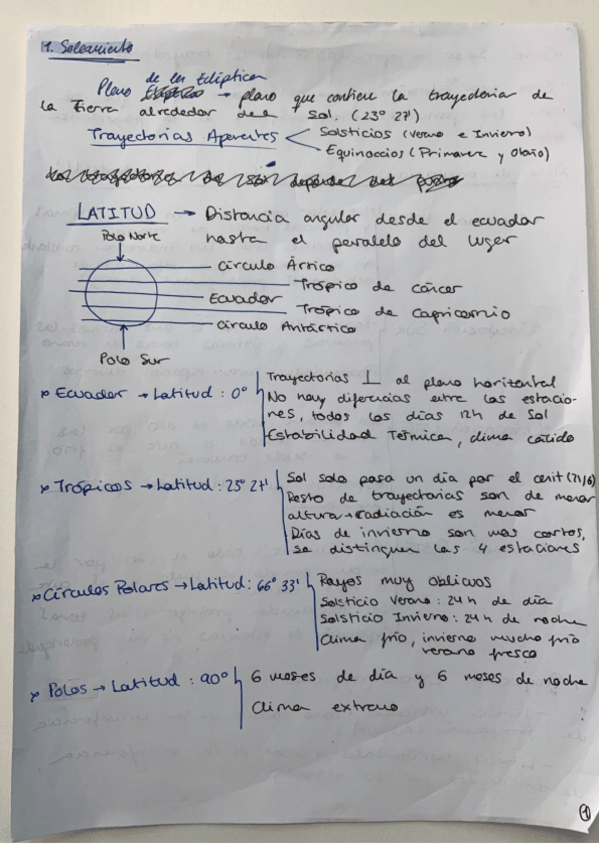 1. Soleamiento
Plano de la Eclíptica → plano que contiene la trayectoria de
la Tierra alrededor del Sol. (23° 27')
Trayectorias Aparentes
Solsticios (Verano e Invierno)
Equinoccios (Primavera y Otoño)
LATITUD → Distancia angular desde el ecuador
hasta el paralelo del lugar
Polo Norte
Círculo Ártico
Trópico de cáncer
Ecuador
Trópico de Capricornio
Círculo Antártico
Polo Sur
* Ecuador → Latitud: 0°
Trayectorias ⊥ al plano horizontal
No hay diferencias entre las estacio-
nes, todos los días 12h de Sol
Estabilidad Térmica, clima cálido
* Trópicos → Latitud: 23° 27'
Sol solo pasa un día por el cenit (21/6)
Resto de trayectorias son de menor
altura → radiación es menor
Días de invierno son más cortos,
se distinguen las 4 estaciones
* Círculos Polares → Latitud: 66° 33'
Rayos muy oblicuos
Solsticio Verano: 24h de día
Solsticio Invierno: 24h de noche
Clima frío, invierno mucho frío
verano fresco
* Polos → Latitud: 90°
6 meses de día y 6 meses de noche
Clima extremo
1